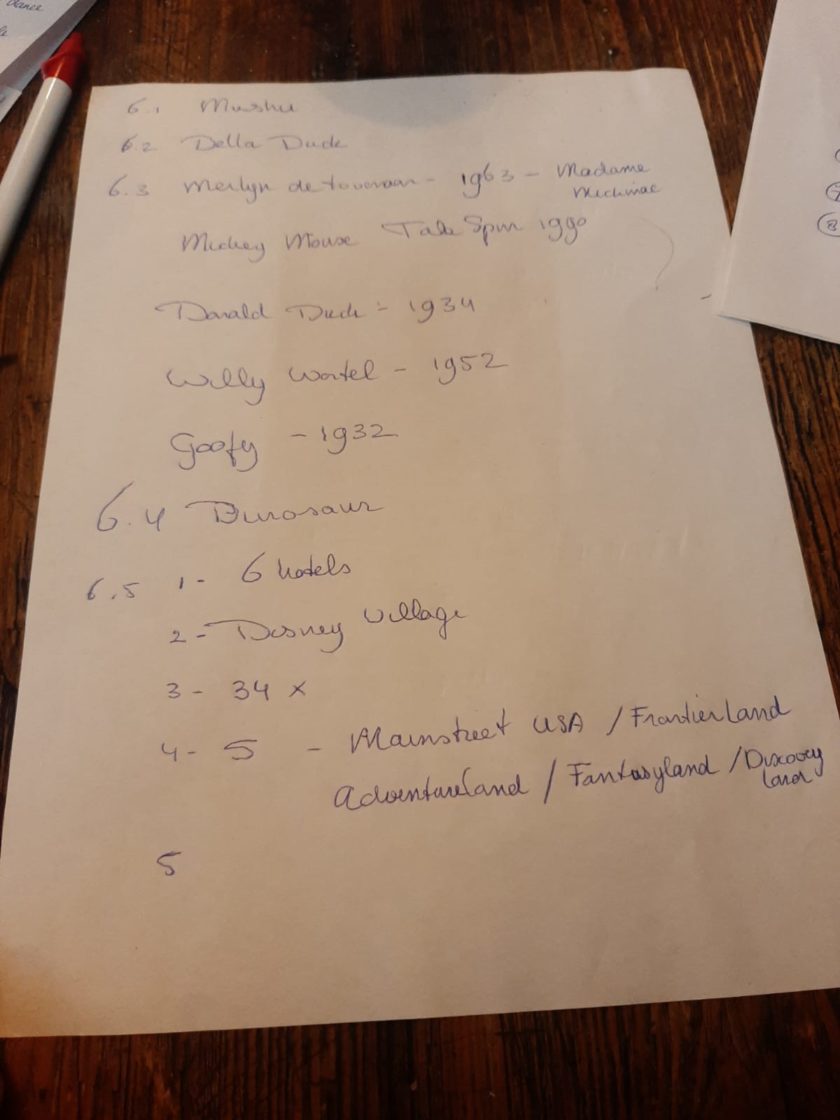 dance
6.1 Mushu
6.2 Della Duck
6.3 Merlyn de tovenaar - 1963 - Madame
Michmac
Mickey Mouse Tale Spin 1990
Donald Duck - 1934
Willy Wortel - 1952
Goofy - 1932
6.4 Dinosaur
6.5 1- 6 hotels
2- Disney Village
3- 34 x
4- 5 - Mainstreet USA / Frontierland
Adventureland / Fantasyland / Discovery
land
5
8